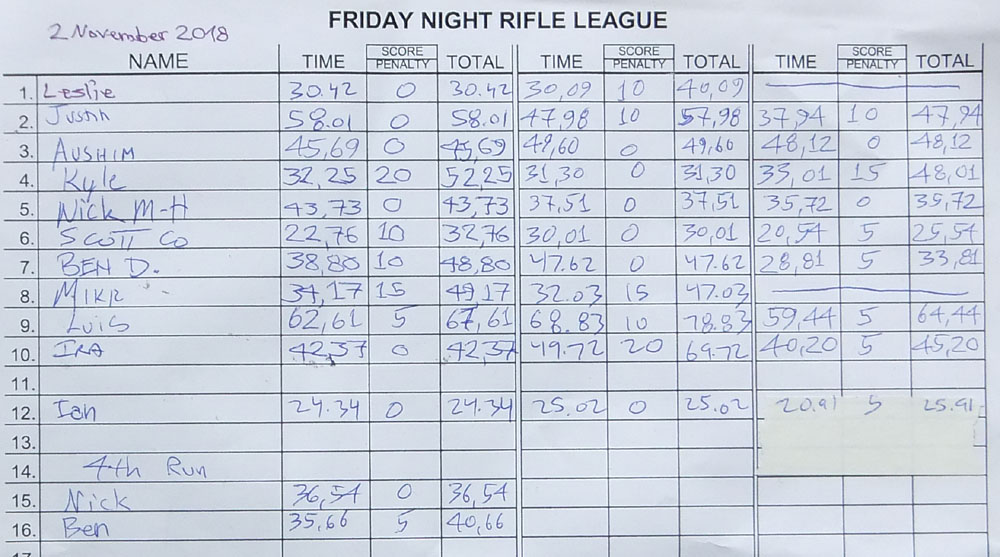 FRIDAY NIGHT RIFLE LEAGUE
2 November 2018
NAME TIME SCORE PENALTY TOTAL TIME SCORE PENALTY TOTAL TIME SCORE PENALTY TOTAL
1. Leslie 30.42 0 30.42 30,09 10 40,09
2. Justin 58.01 0 58.01 47,98 10 57,98 37,94 10 47,94
3. AUSHIM 45,69 0 45,69 49,60 0 49,60 48,12 0 48,12
4. Kyle 32,25 20 52,25 31,30 0 31,30 33,01 15 48,01
5. Nick M-H 43,73 0 43,73 37,51 0 37,51 35,72 0 35,72
6. SCOTT CO 22,76 10 32,76 30,01 0 30,01 20,54 5 25,54
7. BEN D. 38,80 10 48,80 47.62 0 47.62 28,81 5 33,81
8. MIKE 34,17 15 49,17 32.03 15 47.03
9. LUIS 62,61 5 67,61 68.83 10 78.83 59,44 5 64,44
10. IRA 42,37 0 42,37 49.72 20 69.72 40,20 5 45,20
11.
12. Ian 24.34 0 24.34 25.02 0 25.02 20.91 5 25.91
13.
14. 4th Run
15. Nick 36,54 0 36,54
16. Ben 35,66 5 40,66
17